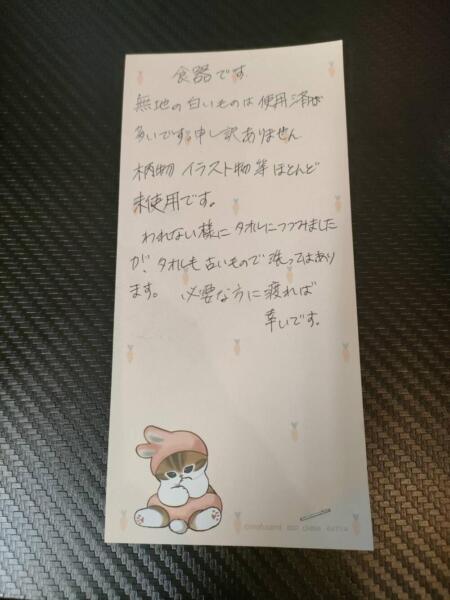 食器です
無地の白いものは使用済が
多いです。申し訳ありません
柄物 イラスト物等 ほとんど
未使用です。
われない様にタオルにつつみました
が、タオルも古いもので洗ってはあり
ます。必要な方に渡れば
幸いです。